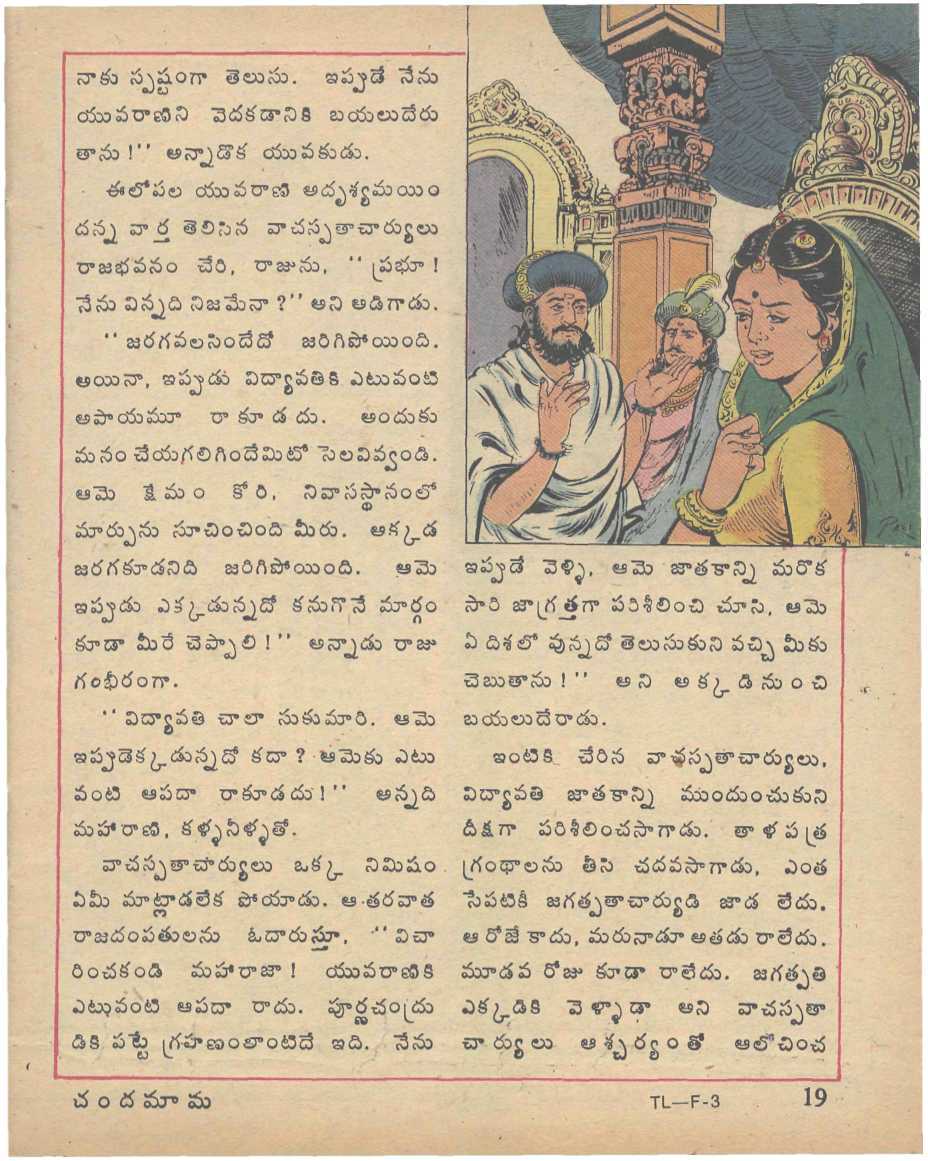 నాకు స్పష్టంగా తెలుసు. ఇప్పుడే నేను
యువరాణిని వెదకడానికి బయలుదేరు
తాను !'' అన్నాడొక యువకుడు.
ఈలోపల యువరాణి అదృశ్యమయిం
దన్న వార్త తెలిసిన వాచస్పతాచార్యులు
రాజభవనం చేరి, రాజును, ''ప్రభూ !
నేను విన్నది నిజమేనా ?'' అని అడిగాడు.
''జరగవలసిందేదో జరిగిపోయింది.
అయినా, ఇప్పుడు విద్యావతికి ఎటువంటి
అపాయమూ రాకూడదు. అందుకు
మనం చేయగలిగిందేమిటో సెలవివ్వండి.
ఆమె క్షేమం కోరి, నివాసస్థానంలో
మార్పును సూచించింది మీరు. అక్కడ
జరగకూడనిది జరిగిపోయింది. ఆమె
ఇప్పుడు ఎక్కడున్నదో కనుగొనే మార్గం
కూడా మీరే చెప్పాలి !'' అన్నాడు రాజు
గంభీరంగా.
''విద్యావతి చాలా సుకుమారి. ఆమె
ఇప్పుడెక్కడున్నదో కదా ? ఆమెకు ఎటు
వంటి ఆపదా రాకూడదు !'' అన్నది
మహారాణి, కళ్ళనీళ్ళతో.
వాచస్పతాచార్యులు ఒక్క నిమిషం
ఏమీ మాట్లాడలేక పోయాడు. ఆ తరవాత
రాజదంపతులను ఓదారుస్తూ, ''విచా
రించకండి మహారాజా ! యువరాణికి
ఎటువంటి ఆపదా రాదు. పూర్ణచంద్రు
డికి పట్టే గ్రహణంలాంటిదే ఇది. నేను
ఇప్పుడే వెళ్ళి, ఆమె జాతకాన్ని మరొక
సారి జాగ్రత్తగా పరిశీలించి చూసి, ఆమె
ఏ దిశలో వున్నదో తెలుసుకుని వచ్చి మీకు
చెబుతాను !'' అని అక్కడినుంచి
బయలుదేరాడు.
ఇంటికి చేరిన వాచస్పతాచార్యులు,
విద్యావతి జాతకాన్ని ముందుంచుకుని
దీక్షగా పరిశీలించసాగాడు. తాళపత్ర
గ్రంథాలను తీసి చదవసాగాడు, ఎంత
సేపటికీ జగత్పతాచార్యుడి జాడ లేదు.
ఆ రోజే కాదు, మరునాడూ అతడు రాలేదు.
మూడవ రోజు కూడా రాలేదు. జగత్పతి
ఎక్కడికి వెళ్ళాడా అని వాచస్పతా
చార్యులు ఆశ్చర్యంతో ఆలోచించ
చందమామ
TL—F-3
19